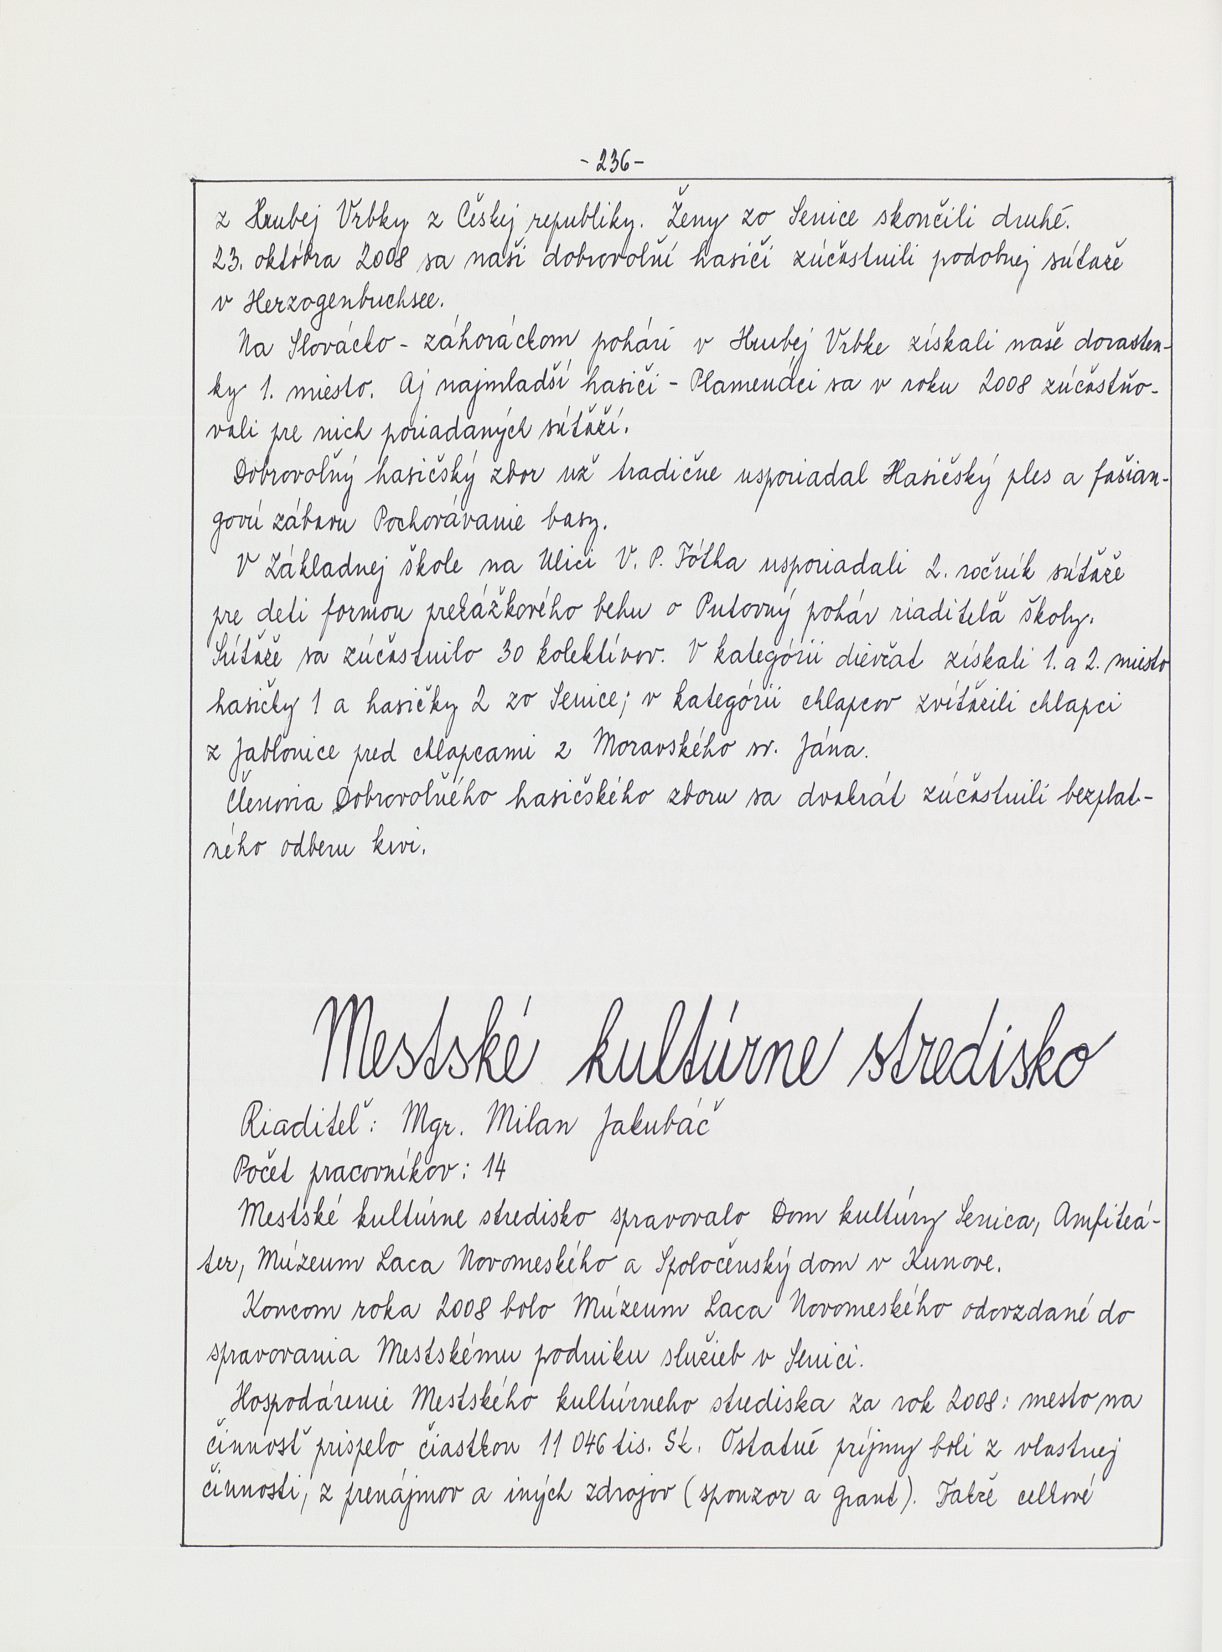 - 236 -
z Hrubej Vrbky z Českej republiky. Ženy zo Senice skončili druhé.
23. októbra 2008 sa naši dobrovoľní hasiči zúčastnili podobnej súťaže
v Herzogenbuchsee.
Na Slovácko - záhoráckom pohári v Hrubej Vrbke získali naše dorasten-
ky 1. miesto. Aj najmladší hasiči - Plamenáci sa v roku 2008 zúčastňo-
vali pre nich poriadaných súťaží.
Dobrovoľný hasičský zbor už tradične usporiadal Hasičský ples a fašian-
govú zábavu Pochovávanie basy.
V Základnej škole na Ulici V. P. Tótha usporiadali 2. ročník súťaže
pre deti formou prekážkového behu o Putovný pohár riaditeľa školy.
Súťaže sa zúčastnilo 30 kolektívov. V kategórii dievčat získali 1. a 2. miesto
hasičky 1 a hasičky 2 zo Senice; v kategórii chlapcov zvíťazili chlapci
z Jablonice pred chlapcami z Moravského sv. Jána.
Členovia Dobrovoľného hasičského zboru sa dvakrát zúčastnili bezplat-
ného odberu krvi.
Mestské kultúrne stredisko
Riaditeľ: Mgr. Milan Jakubáč
Počet pracovníkov: 14
Mestské kultúrne stredisko spravovalo Dom kultúry Senica, Amfiteá-
ter, Múzeum Laca Novomeského a Spoločenský dom v Kunove.
Koncom roka 2008 bolo Múzeum Laca Novomeského odovzdané do
spravovania Mestskému podniku služieb v Senici.
Hospodárenie Mestského kultúrneho strediska za rok 2008: mesto na
činnosť prispelo čiastkou 11 046 tis. Sk. Ostatné príjmy boli z vlastnej
činnosti, z prenájmov a iných zdrojov (sponzor a grant). Takže celkové